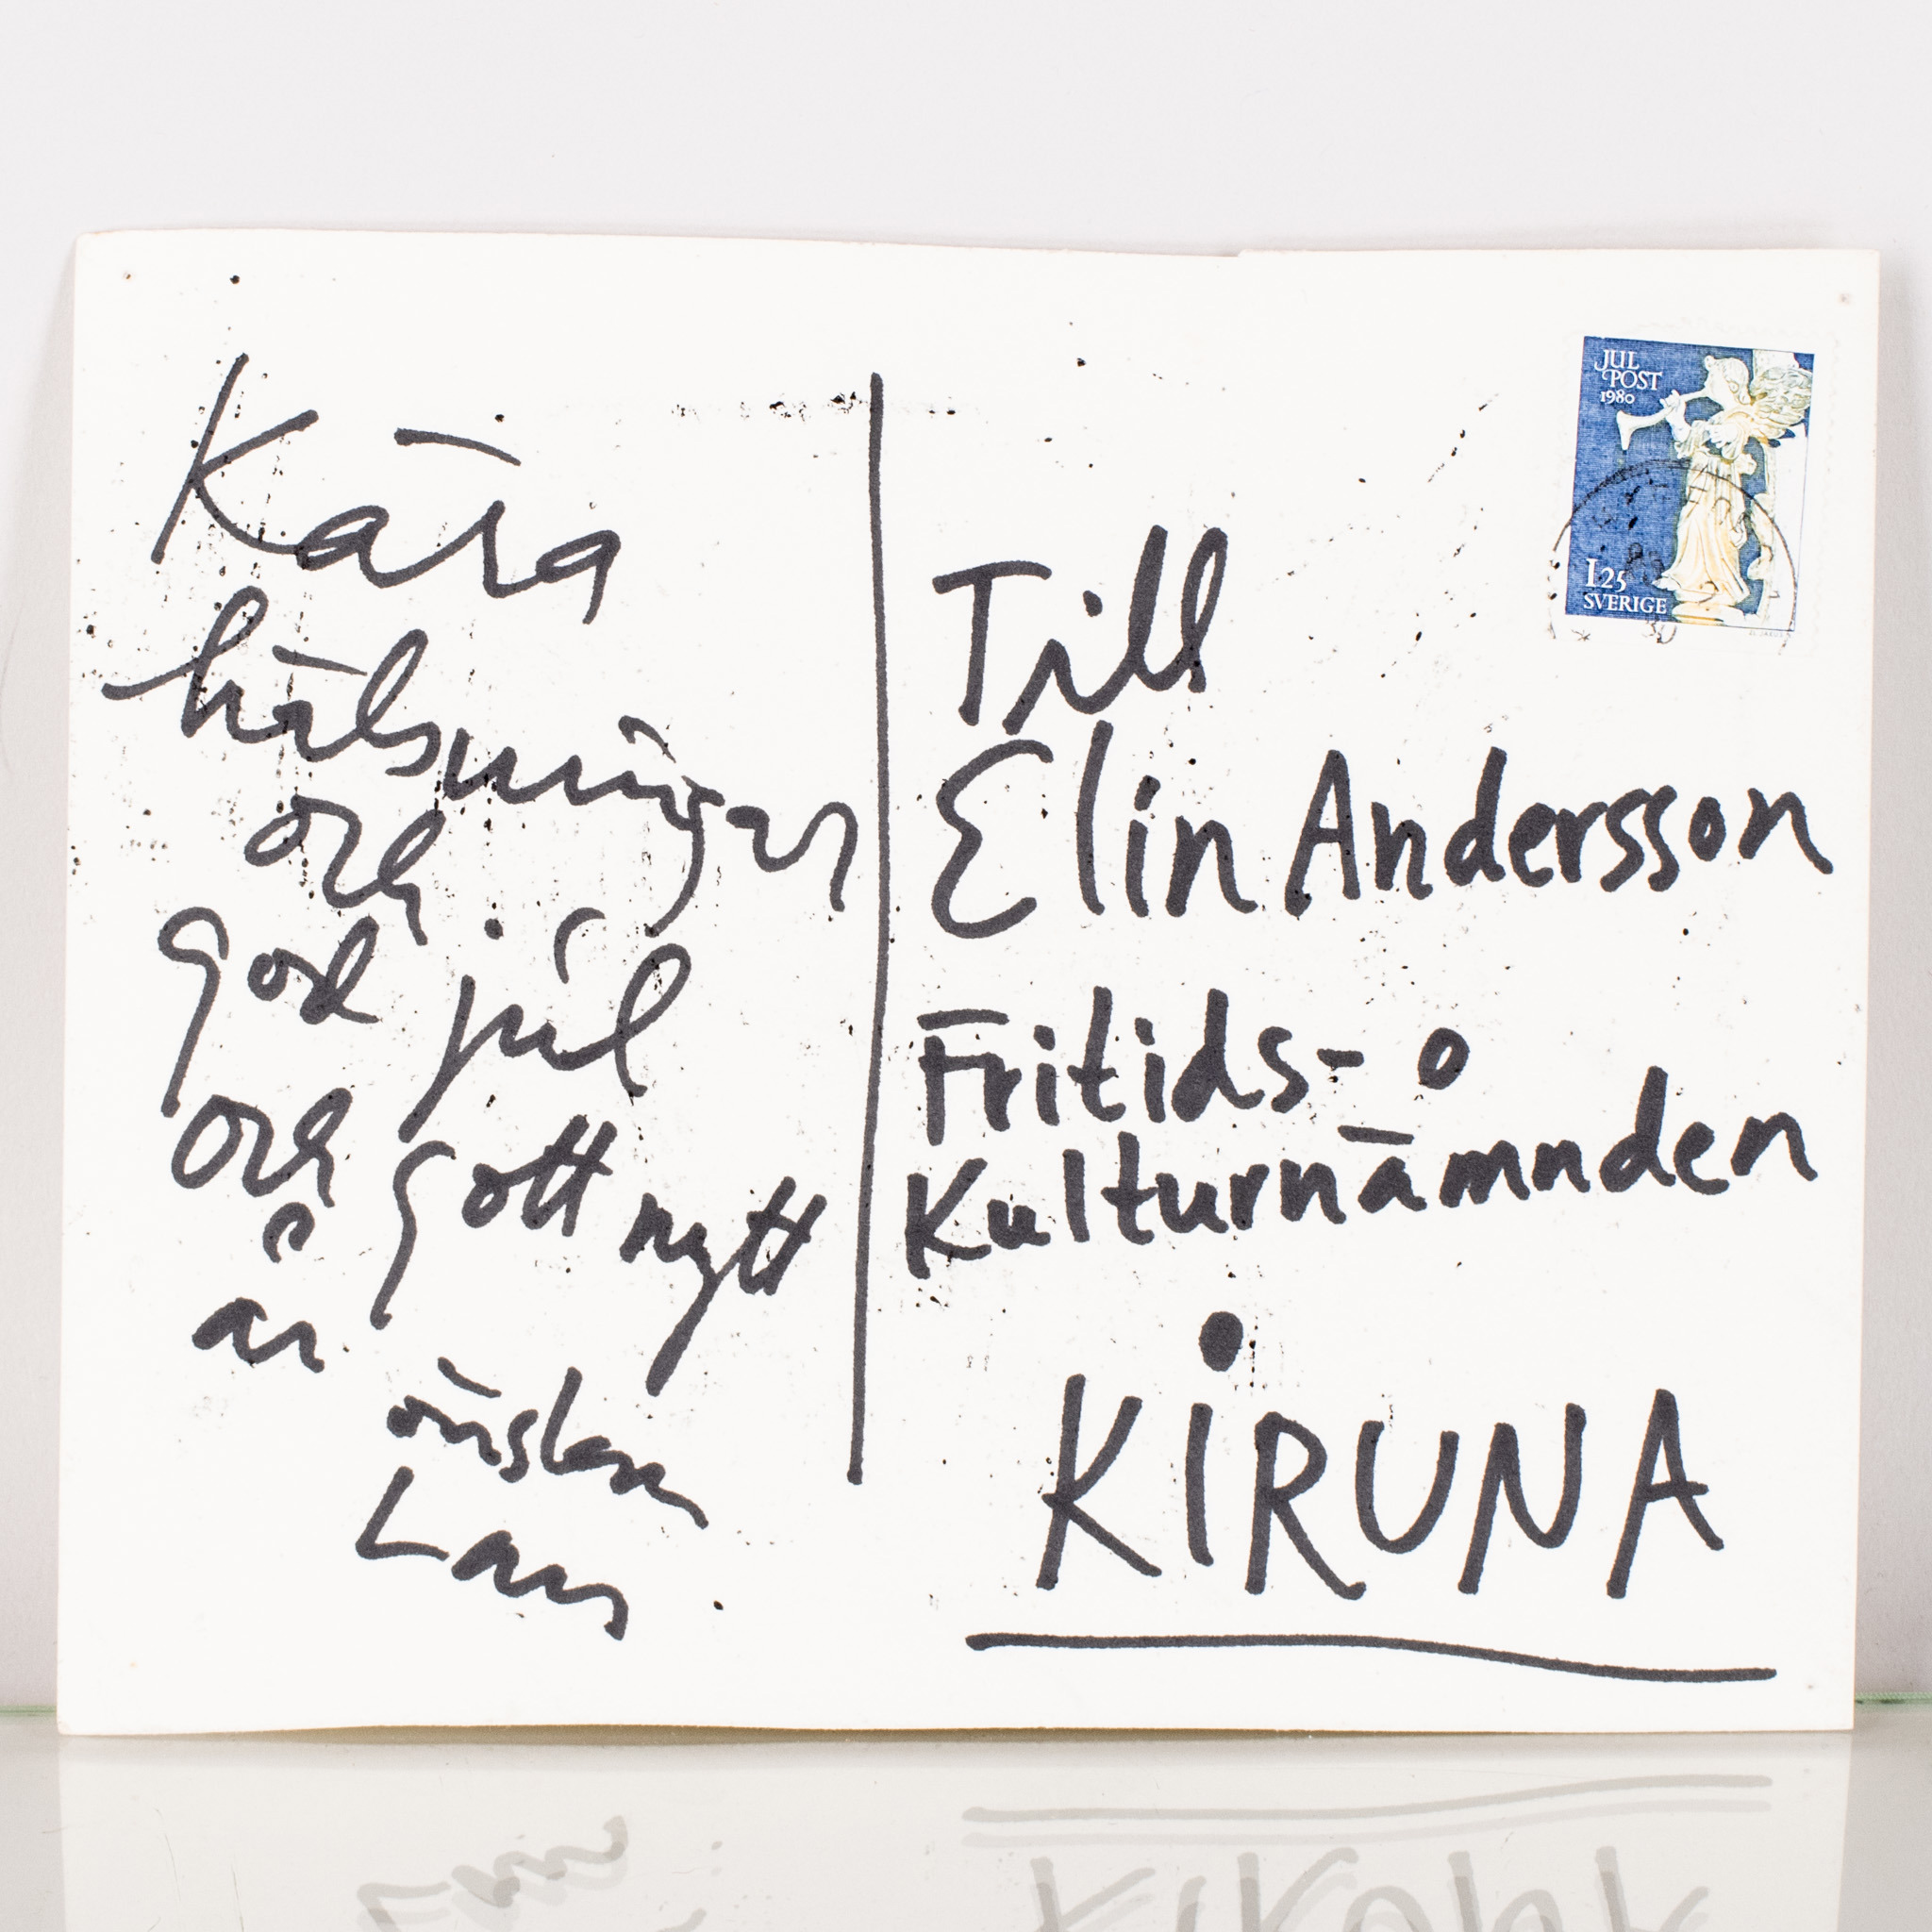 Kära
hälsningar
och
god jul
och gott nytt
år
önskar
Lars.
JUL
POST
1980
1.25
SVERIGE
Till
Elin Andersson
Fritids- o
Kulturnämnden
KiRUNA